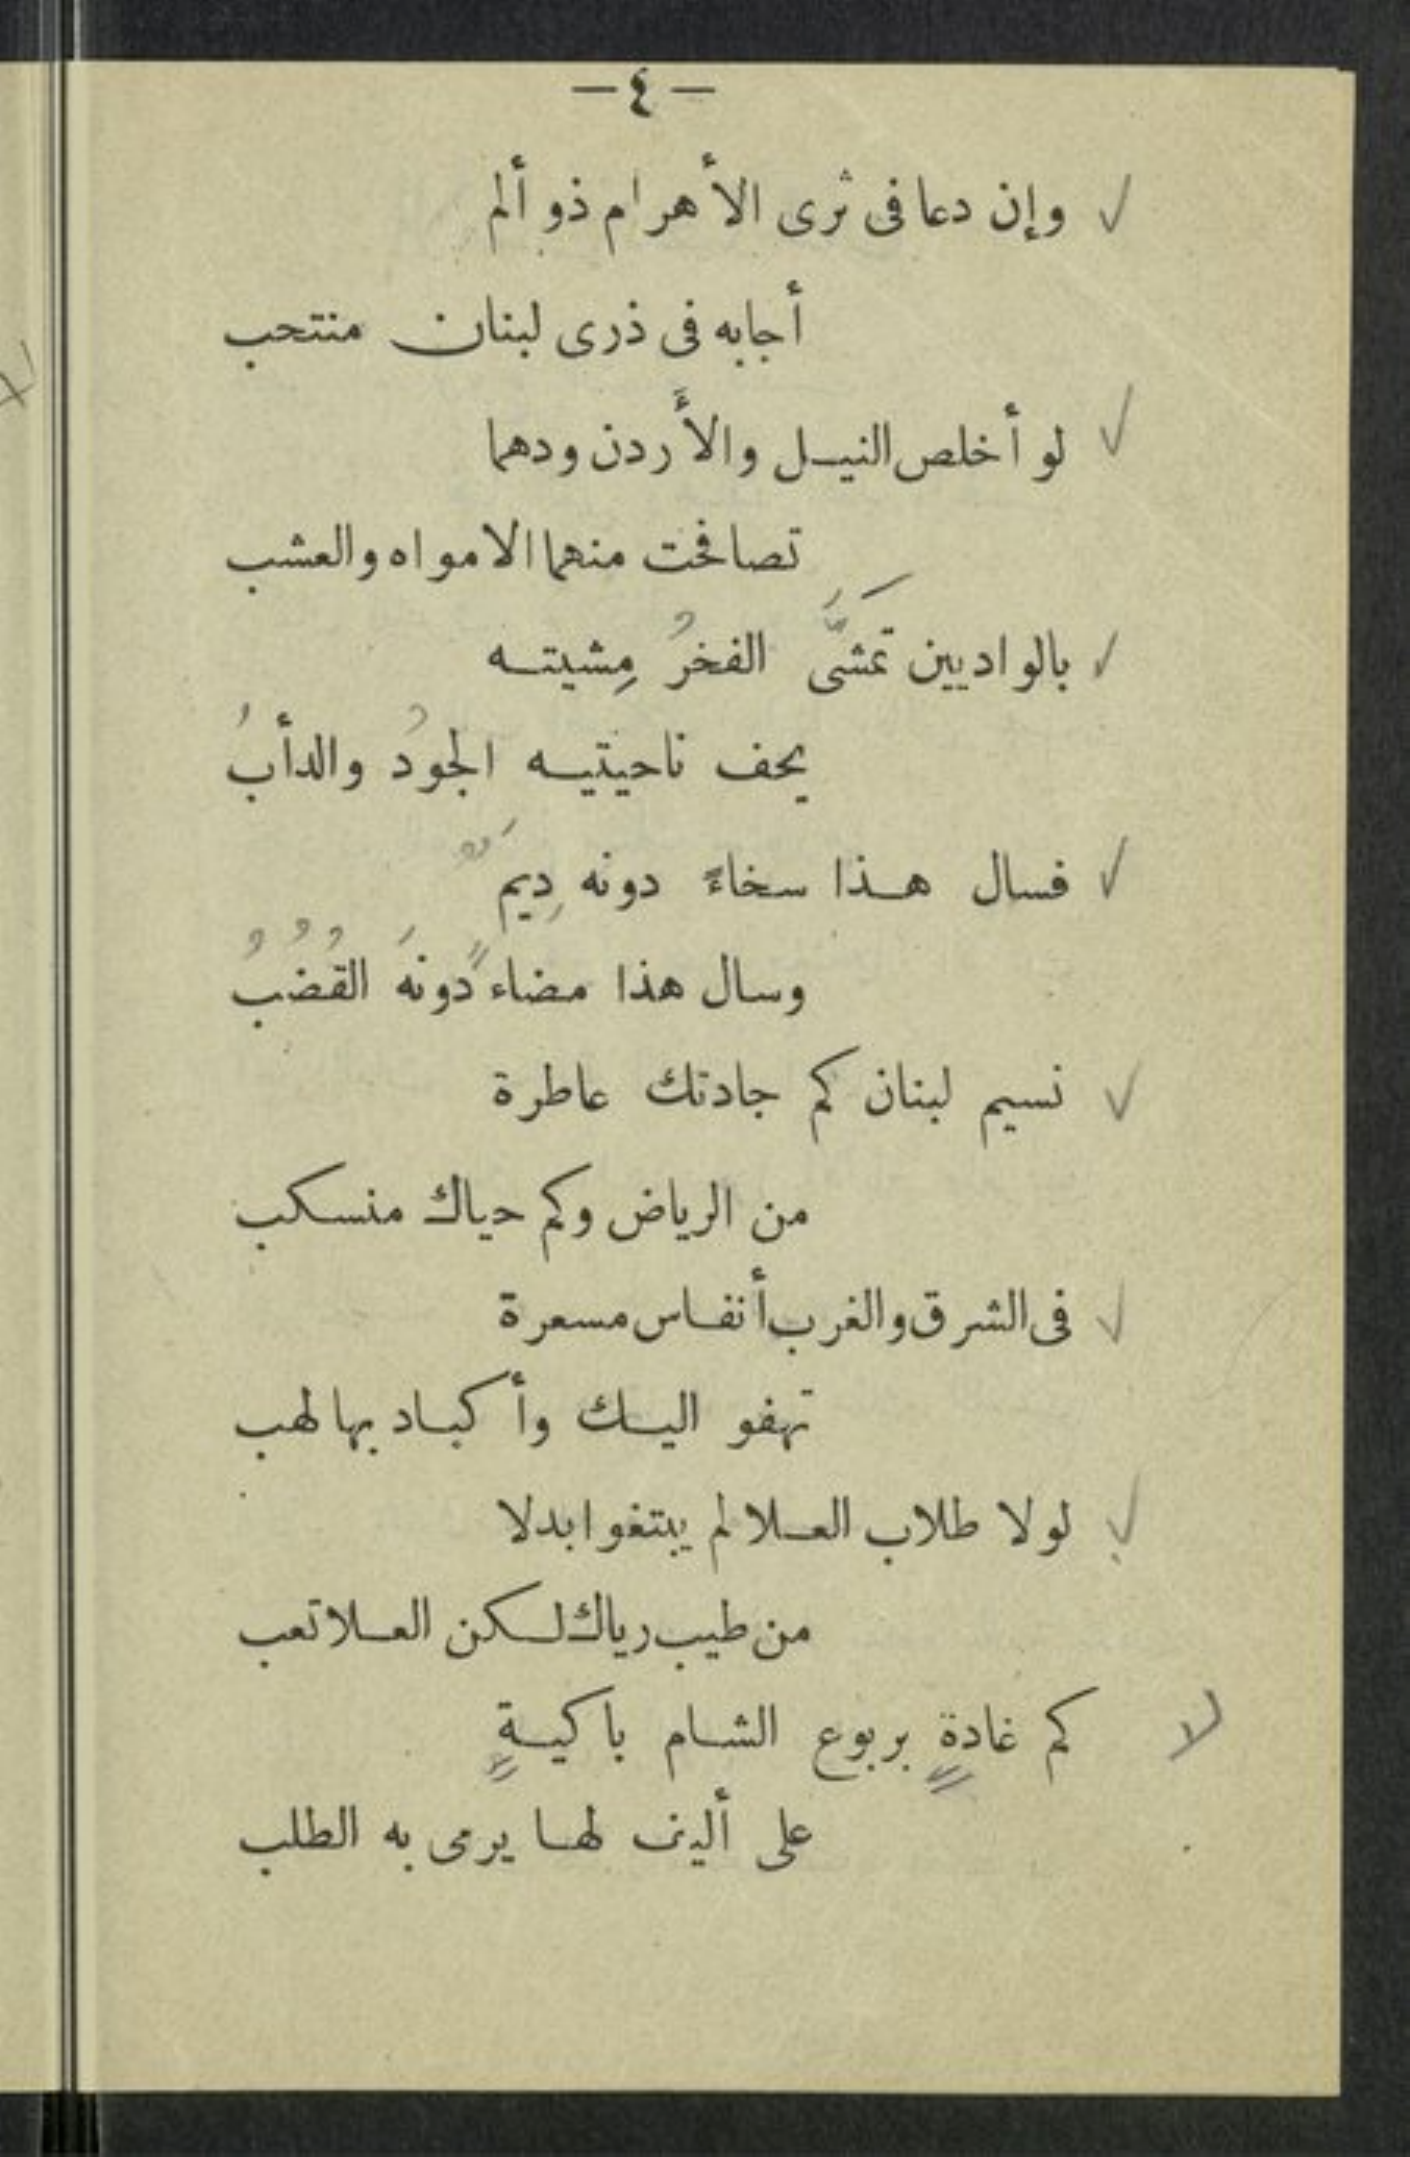 — ٤ —
وإن دعا فى ثرى الأهرام ذو ألم
أجابه فى ذرى لبنان منتحب
لو أخلص النيل والأَردن ودهما
تصافحت منهما الامواه والعشب
بالواديين تمَشَّى الفخرُ مِشيته
يحف ناحيتيه الجودُ والدأبُ
فسال هذا سخاءً دونه دِيَمٌ
وسال هذا مضاءً دونَه القُضُبُ
نسيم لبنان كم جادتك عاطرة
من الرياض وكم حياك منسكب
فى الشرق والغرب أنفاس مسعرة
تهفو اليك وأكباد بها لهب
لولا طلاب العلا لم يبتغوا بدلا
من طيب رياك لكن العلا تعب
لا كم غادةٍ بربوع الشام باكيةٍ
على أليف لها يرمى به الطلب